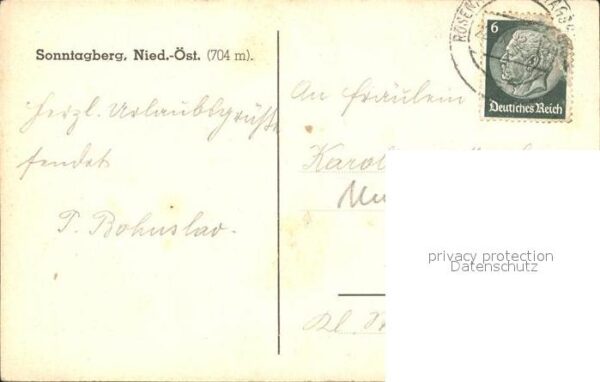 Sonntagberg, Nied.-Öst. (704 m).
Herzl. Urlaubsgrüße
sendet
P. Bohuslav.
6
Deutsches Reich
An Fräulein
privacy protection
Datenschutz